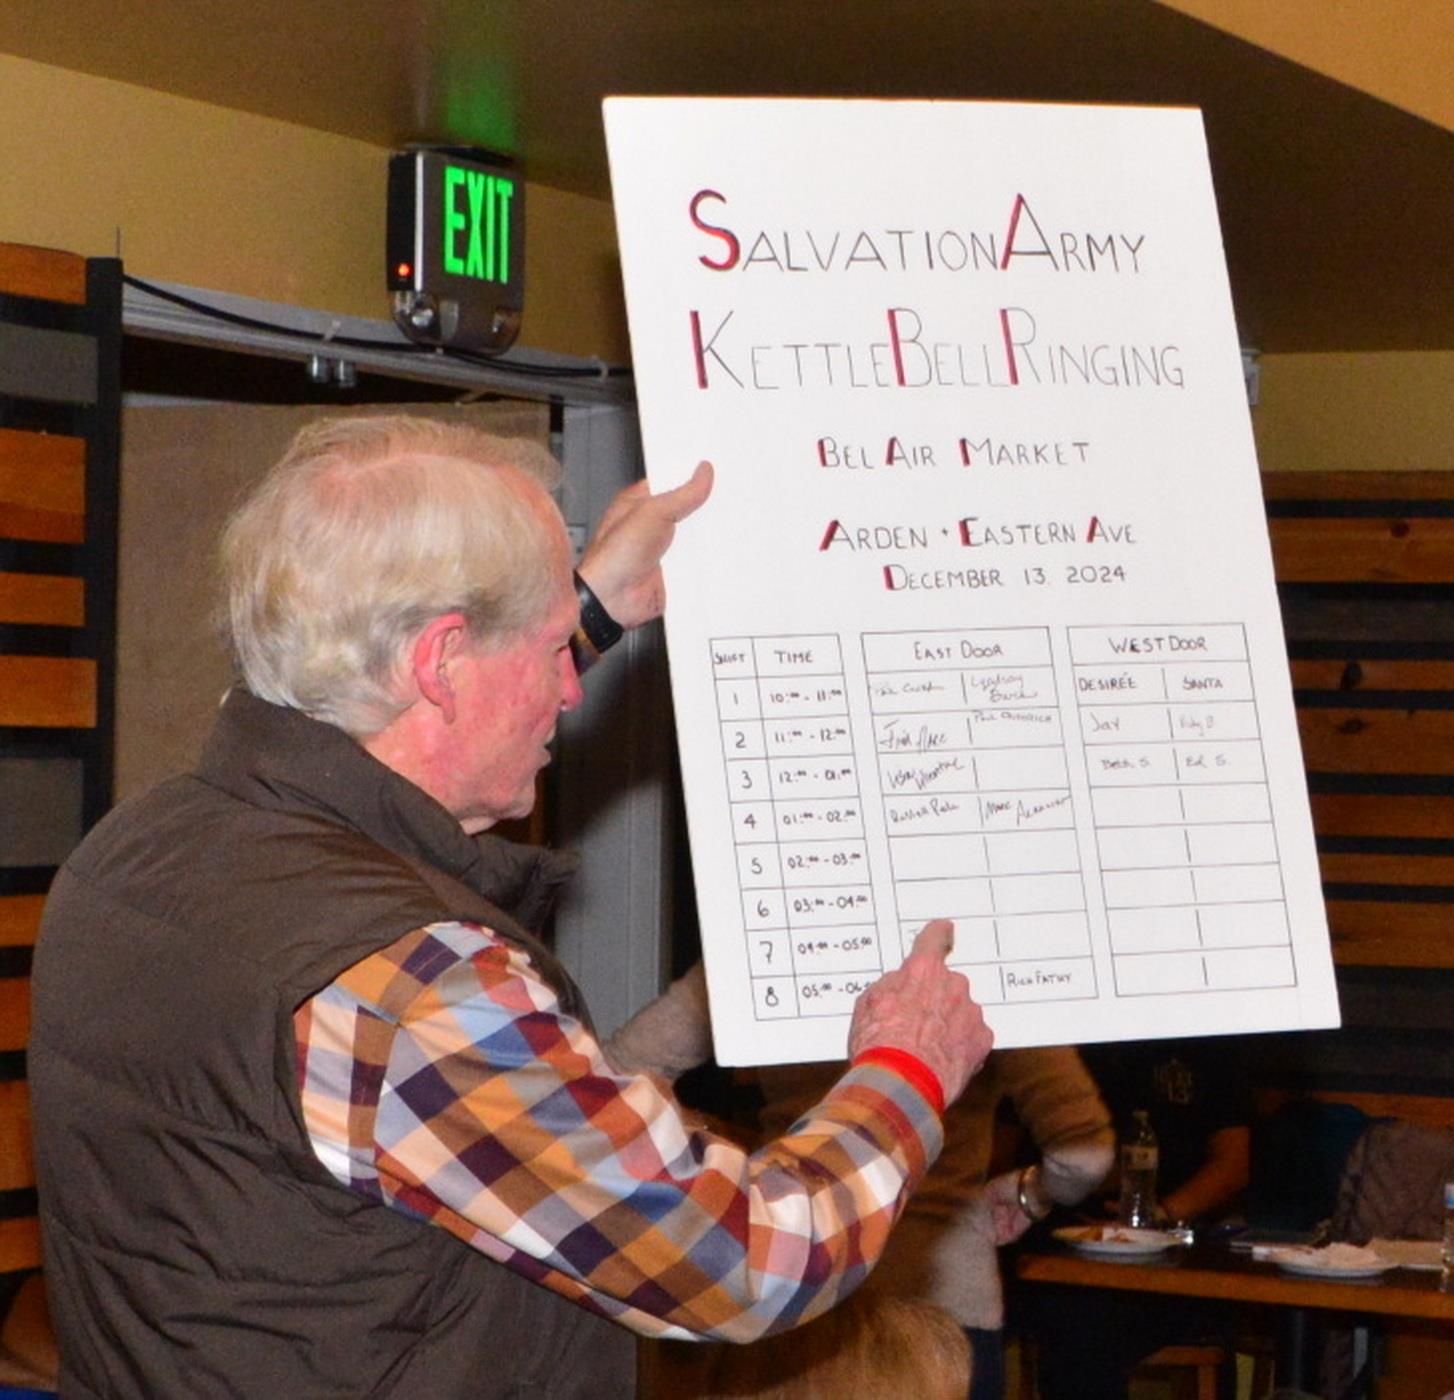 EXIT
SALVATION ARMY
KETTLE BELL RINGING
BEL AIR MARKET
ARDEN + EASTERN AVE
DECEMBER 13, 2024
SHIFT TIME EAST DOOR WEST DOOR
1 10:00 - 11:00 Lyndsay DESIRÉE SANTA
2 11:00 - 12:00 PHIL Jay
3 12:00 - 01:00 Beth S. Ed S.
4 01:00 - 02:00 Russell Marc
5 02:00 - 03:00
6 03:00 - 04:00
7 04:00 - 05:00
8 05:00 - 06 RICH FATHY